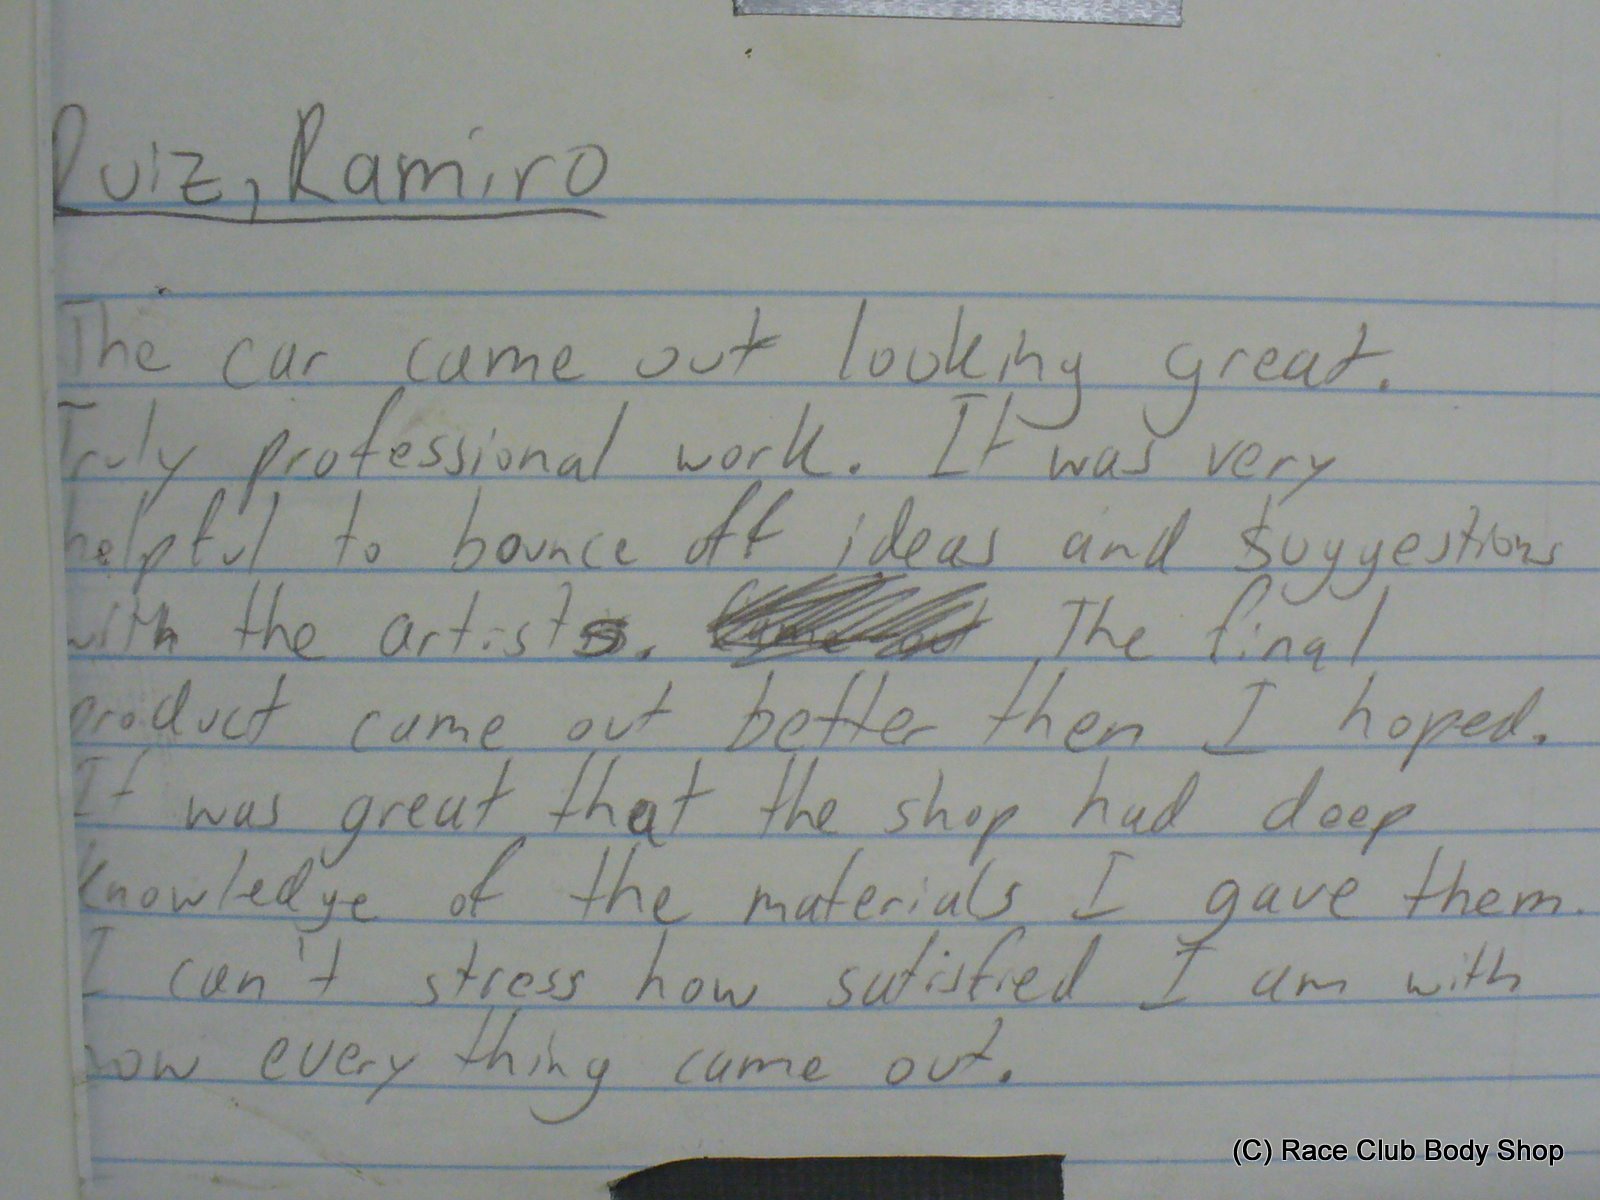 Ruiz, Ramiro
The car came out looking great.
Truly professional work. It was very
helpful to bounce off ideas and suggestions
with the artists. The final
product came out better then I hoped.
It was great that the shop had deep
knowledge of the materials I gave them.
I can't stress how satisfied I am with
how every thing came out.
(C) Race Club Body Shop